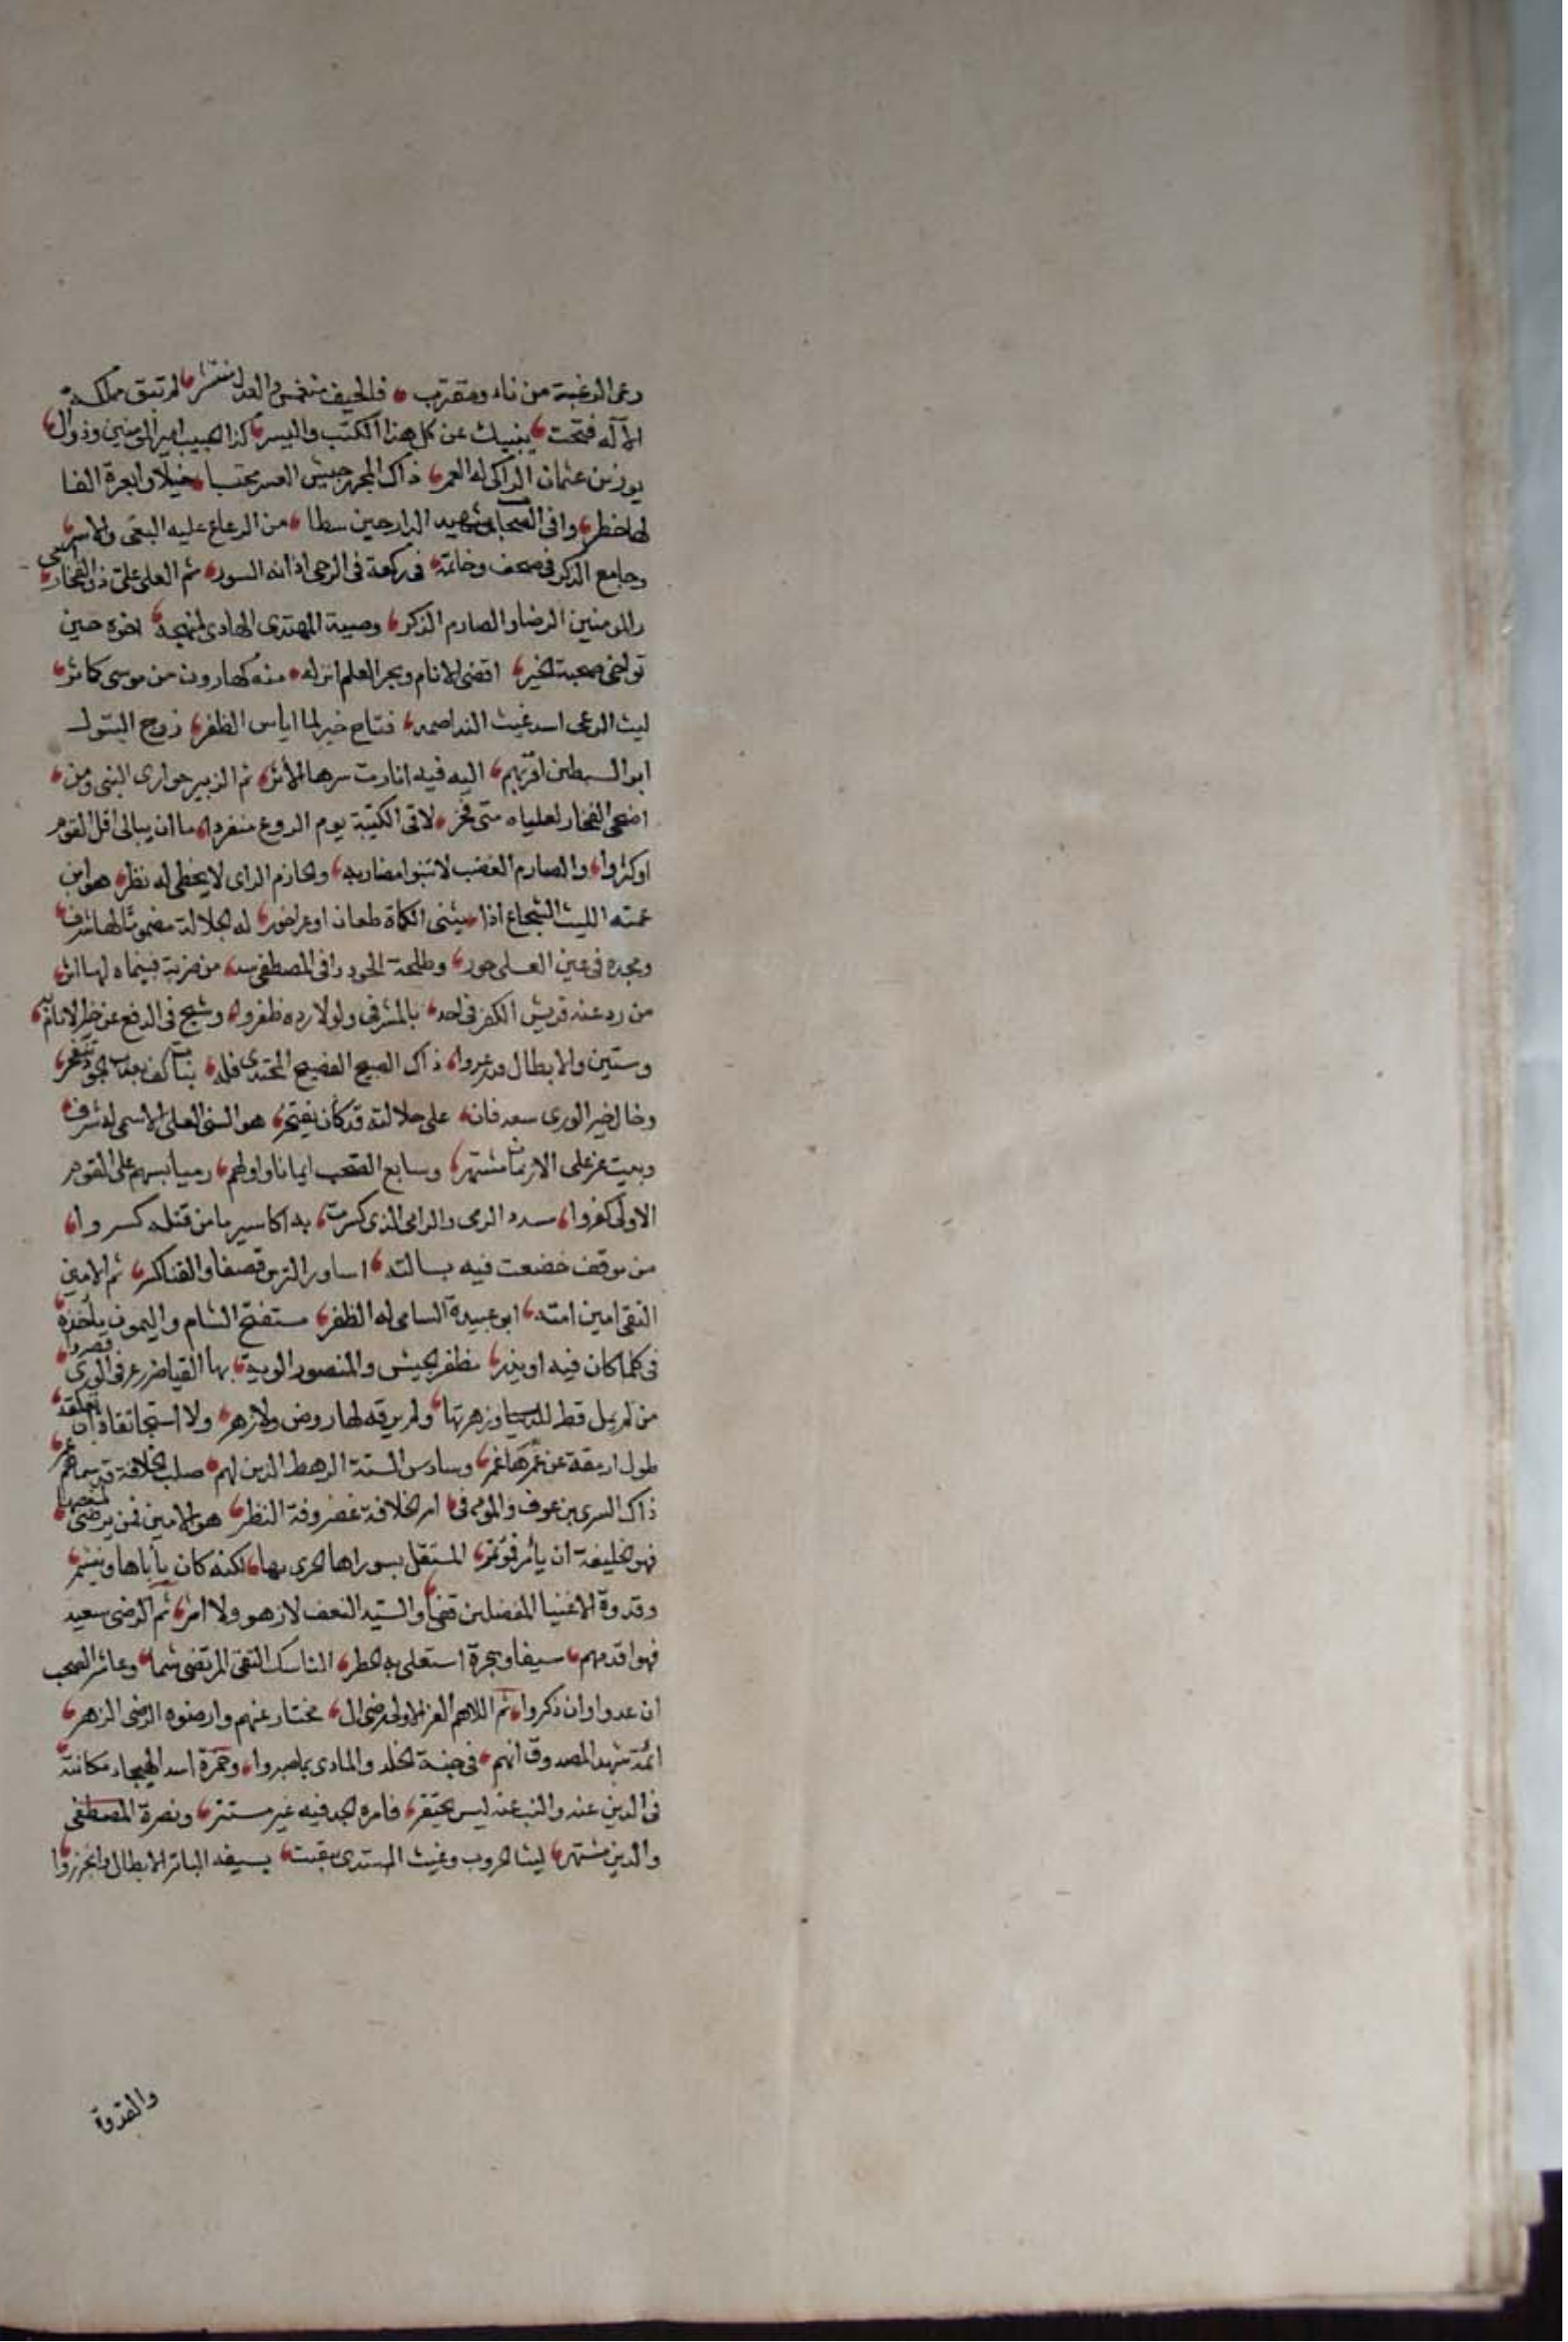 رعى الرغبة من ناء ومقترب فالحيف منغمس والعدل منتشر لم تبق مملكة
الا له فتحت ينبيك عن كل هذا الكتب والسير كذا الحبيب امير المومنين وذو ال
نورين عثمان الزاكى له العمر ذاك المجهز جيش العسر محتسبا خيلا وابعرة الفا
لها خطر وافى شهيد الدار حين سطا من الرعاع عليه البغى والاسر
وجامع الذكر فى صحف وخاتمه فى ركعة فى الدجى اذ انه السور ثم العلى على ذو الفخار امي
ر المومنين الرضا والصارم الذكر وصيه المهتدى الهادى لمنهجه اخوه حين
توخى صحبه الخير اقضى الانام وبحر العلم انزله منه كهارون من موسى كما ثر
ليث الوعى اسد غيث الندا فتاح خيبر لما اياس الظفر زوج البتول
ابو السبطين اقربهم اليه فيه انارت سرها الاثر ثم الزبير حوارى النبى ومن
اضحى الفخار لعلياه متى فخر لاقى الكتيبة يوم الروع منفردا ما ان يبالى اقل القوم
او كثروا والصارم العضب لا تنبو مضاربه والحازم الراى لا يخطى له نظر هو ابن
عمته الليث الشجاع اذا يثنى الكماة طعان او عرا خور له الجلالة مضموما لها شرف
ومجده فى عين العلى حور وطلحة الجود من مزية فيه لها اثر
من رد عنه قريش الكفر فى احد بالمشرفى ولولا رده ظفروا وشج فى الدفع عن خير الانام
وستين والابطال قد عروا ذاك الصبيح الفصيح المجتدى فله بنات كف الجود تنفجر
وخال خير الورى سعد فان على جلالته قد كان يفتخر هو السنى العلى الاسمى له شرف
وبيت عز على الازمان مشتهر وسابع الصحب ايمانا واولهم رميا بسهم على القوم
الاولى كفروا سدد الرمى والرامى الذى كسرت به اكاسير ما من قبله كسروا
من موقف خضعت فيه بسالته اساور الترس قصفا والقنا كسر ثم الامين
التقى امين امته ابو عبيدة السامى له الظفر مستفتح الشام والميمون ياخذه
فى كلما كان فيه او يذر مظفر الجيش والمنصور الويه بها القياصر عن فى الورى قصروا
من لم يمل قط للدنيا وزهرتها ولم يرقه لها روض ولا زهر ولا استجا تقاه ان تملقه
طول اريقة عن غمرها غمر وسادس الستة الرهط الذين لهم صلب الخلافة قد سماهم عمر
ذاك السرى بن عوف والموم فى امر الخلافة غض وفه النظر هو الامين فمن يرضى لمنصبها
فهو الخليفة ان يامر فموتمر المستقل بسوراها الحرى بها لكنه كان ياباها وينشمر
وقدوة الاغنيا المفضلين تقى والسيد النعف لا زهو ولا اشر ثم الرضى سعيد
فهو اقدمهم سيفا وهجرة استعلى به الخطر الناسك التقى المرتضى شما وعاشر الصحب
ان عدوا وان ذكروا ثم اللاهم الغر الاولى رضى ال مختار عنهم وارضوه الرضى الزهر
ائمة شهد المصدوق انهم فى جنة الخلد والمادى بما صبروا وحمزة اسد الهيجاء مكانته
فى الدين عند والنب عنه ليس يحتقر فامره الجد فيه غير مستتر ونصرة المصطفى
والدين مشتهر ليث الحروب وغيث المستدى بسيفه الباتر الابطال وانجزروا
والقدوة